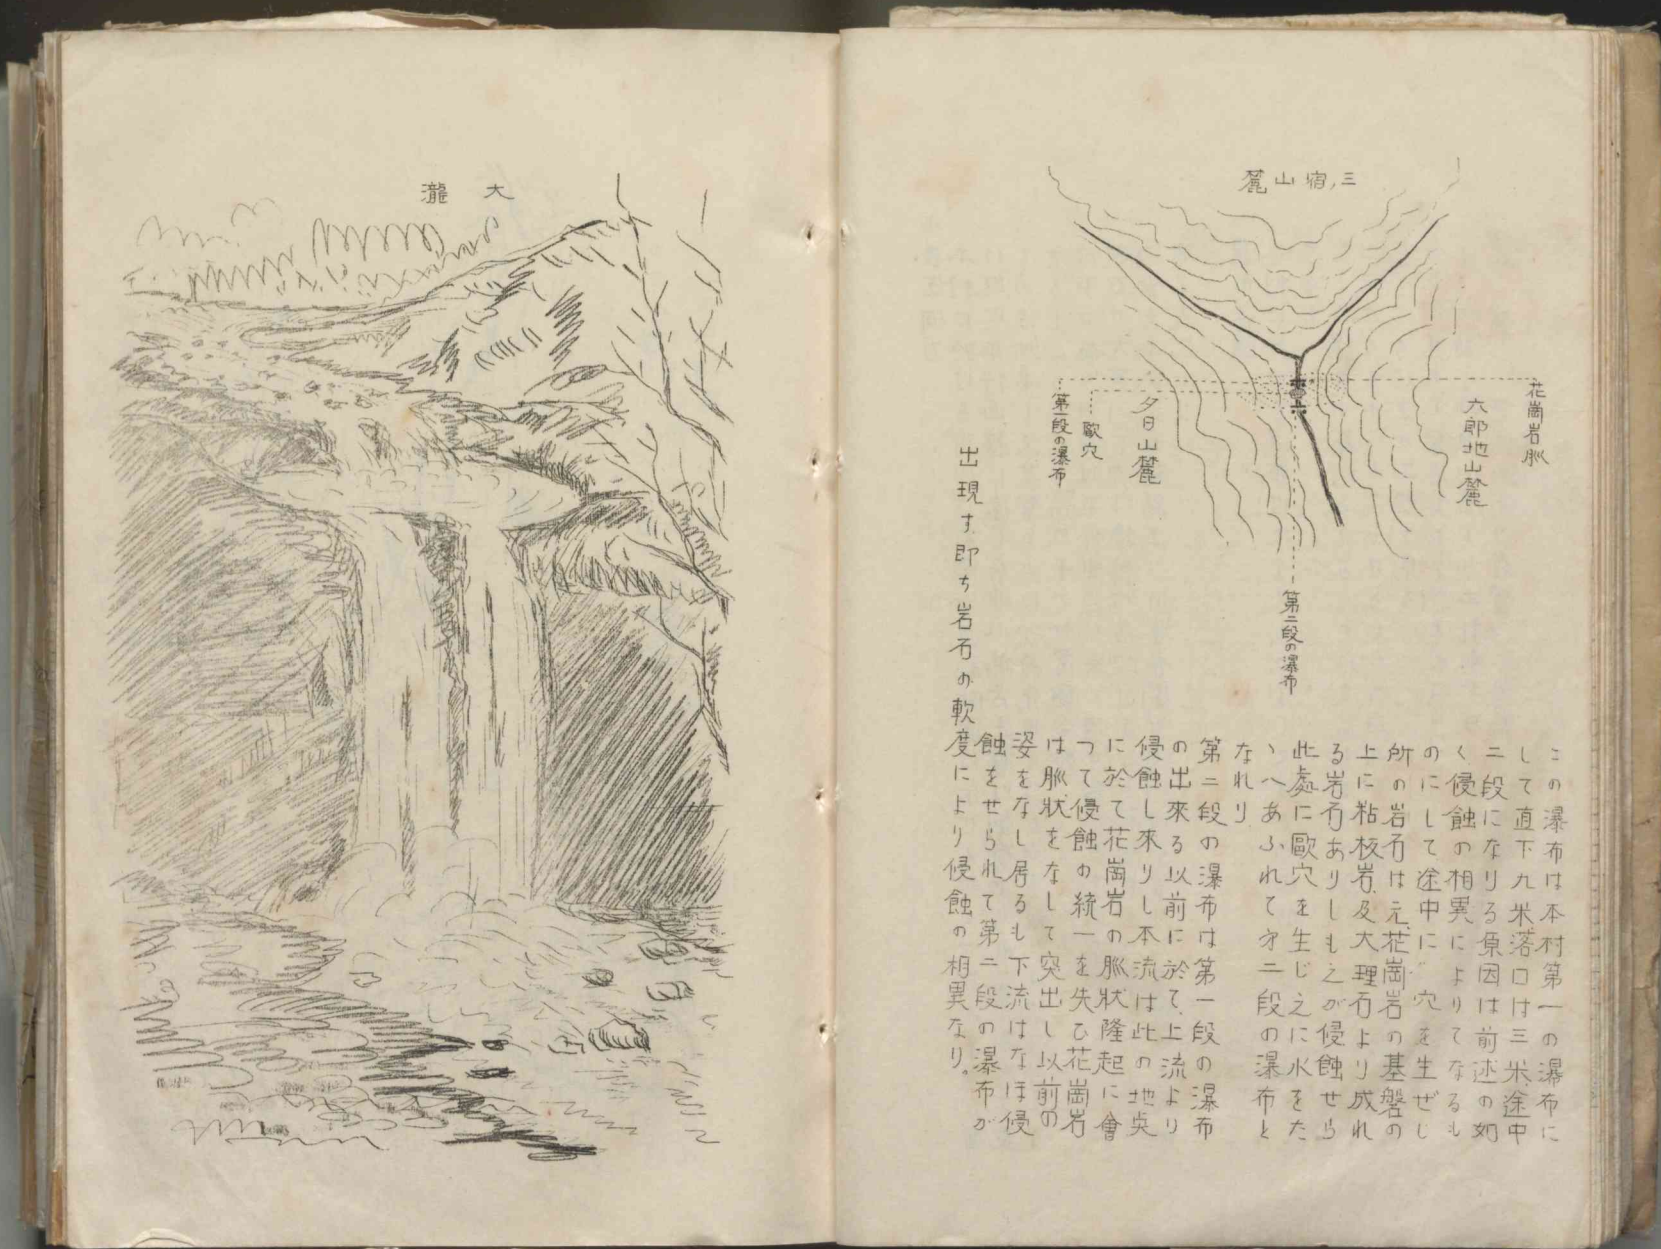 三宿山麓
花崗岩脈
六郎地山麓
夕日山麓
歐穴
第一段の瀑布
第二段の瀑布
この瀑布は本村第一の瀑布に
して直下九米落口は三米途中
二段になりる原因は前述の如
く侵蝕の相異によりてなるも
のにして途中に穴を生ぜし
所の岩石は元花崗岩の基盤の
上に粘板岩及大理石より成れ
る岩石ありしも之が侵蝕せら
此處に歐穴を生じ之に水をた
ゝへあふれて第二段の瀑布と
なれり
第二段の瀑布は第一段の瀑布
の出來る以前に於て上流より
侵蝕し來りし本流は此の地点
に於て花崗岩の脈狀隆起に會
つて侵蝕の統一を失ひ花崗岩
は脈狀をなして突出し以前の
姿をなし居るも下流はなほ侵
蝕をせられて第二段の瀑布が
出現す、即ち岩石の軟度により侵蝕の相異なり。
大瀧